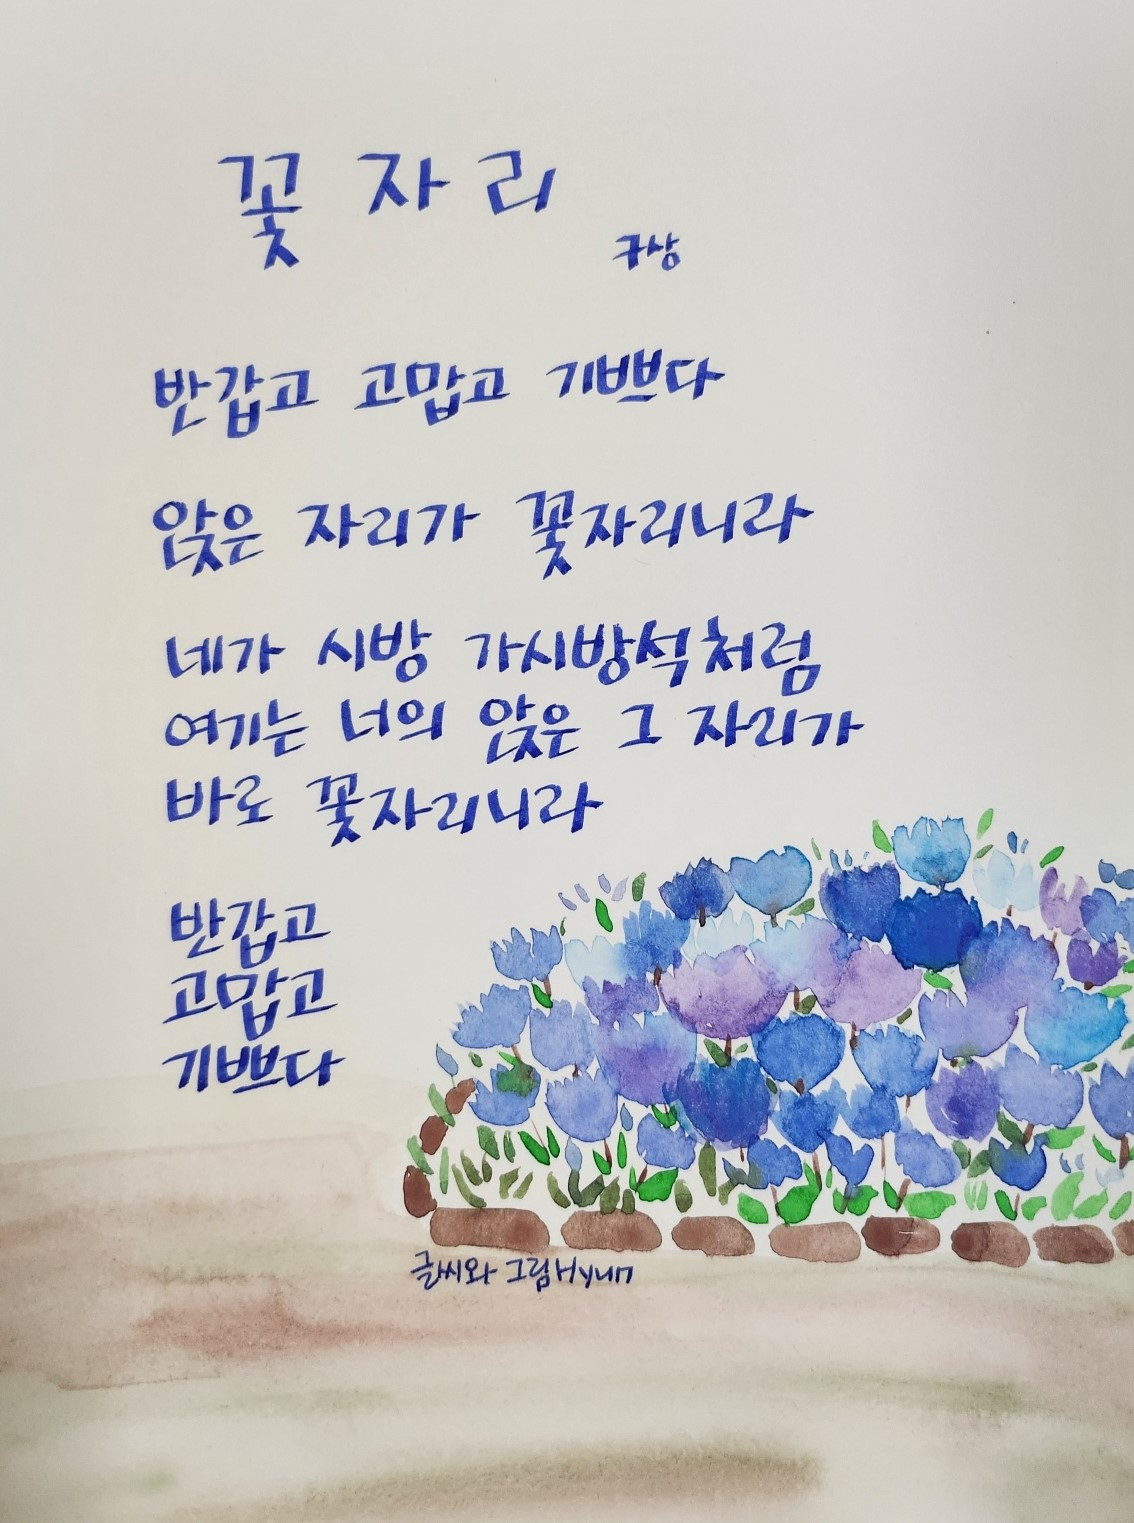 꽃자리
구상
반갑고 고맙고 기쁘다
앉은 자리가 꽃자리니라
네가 시방 가시방석처럼
여기는 너의 앉은 그 자리가
바로 꽃자리니라
반갑고
고맙고
기쁘다
글씨와 그림 Hyun